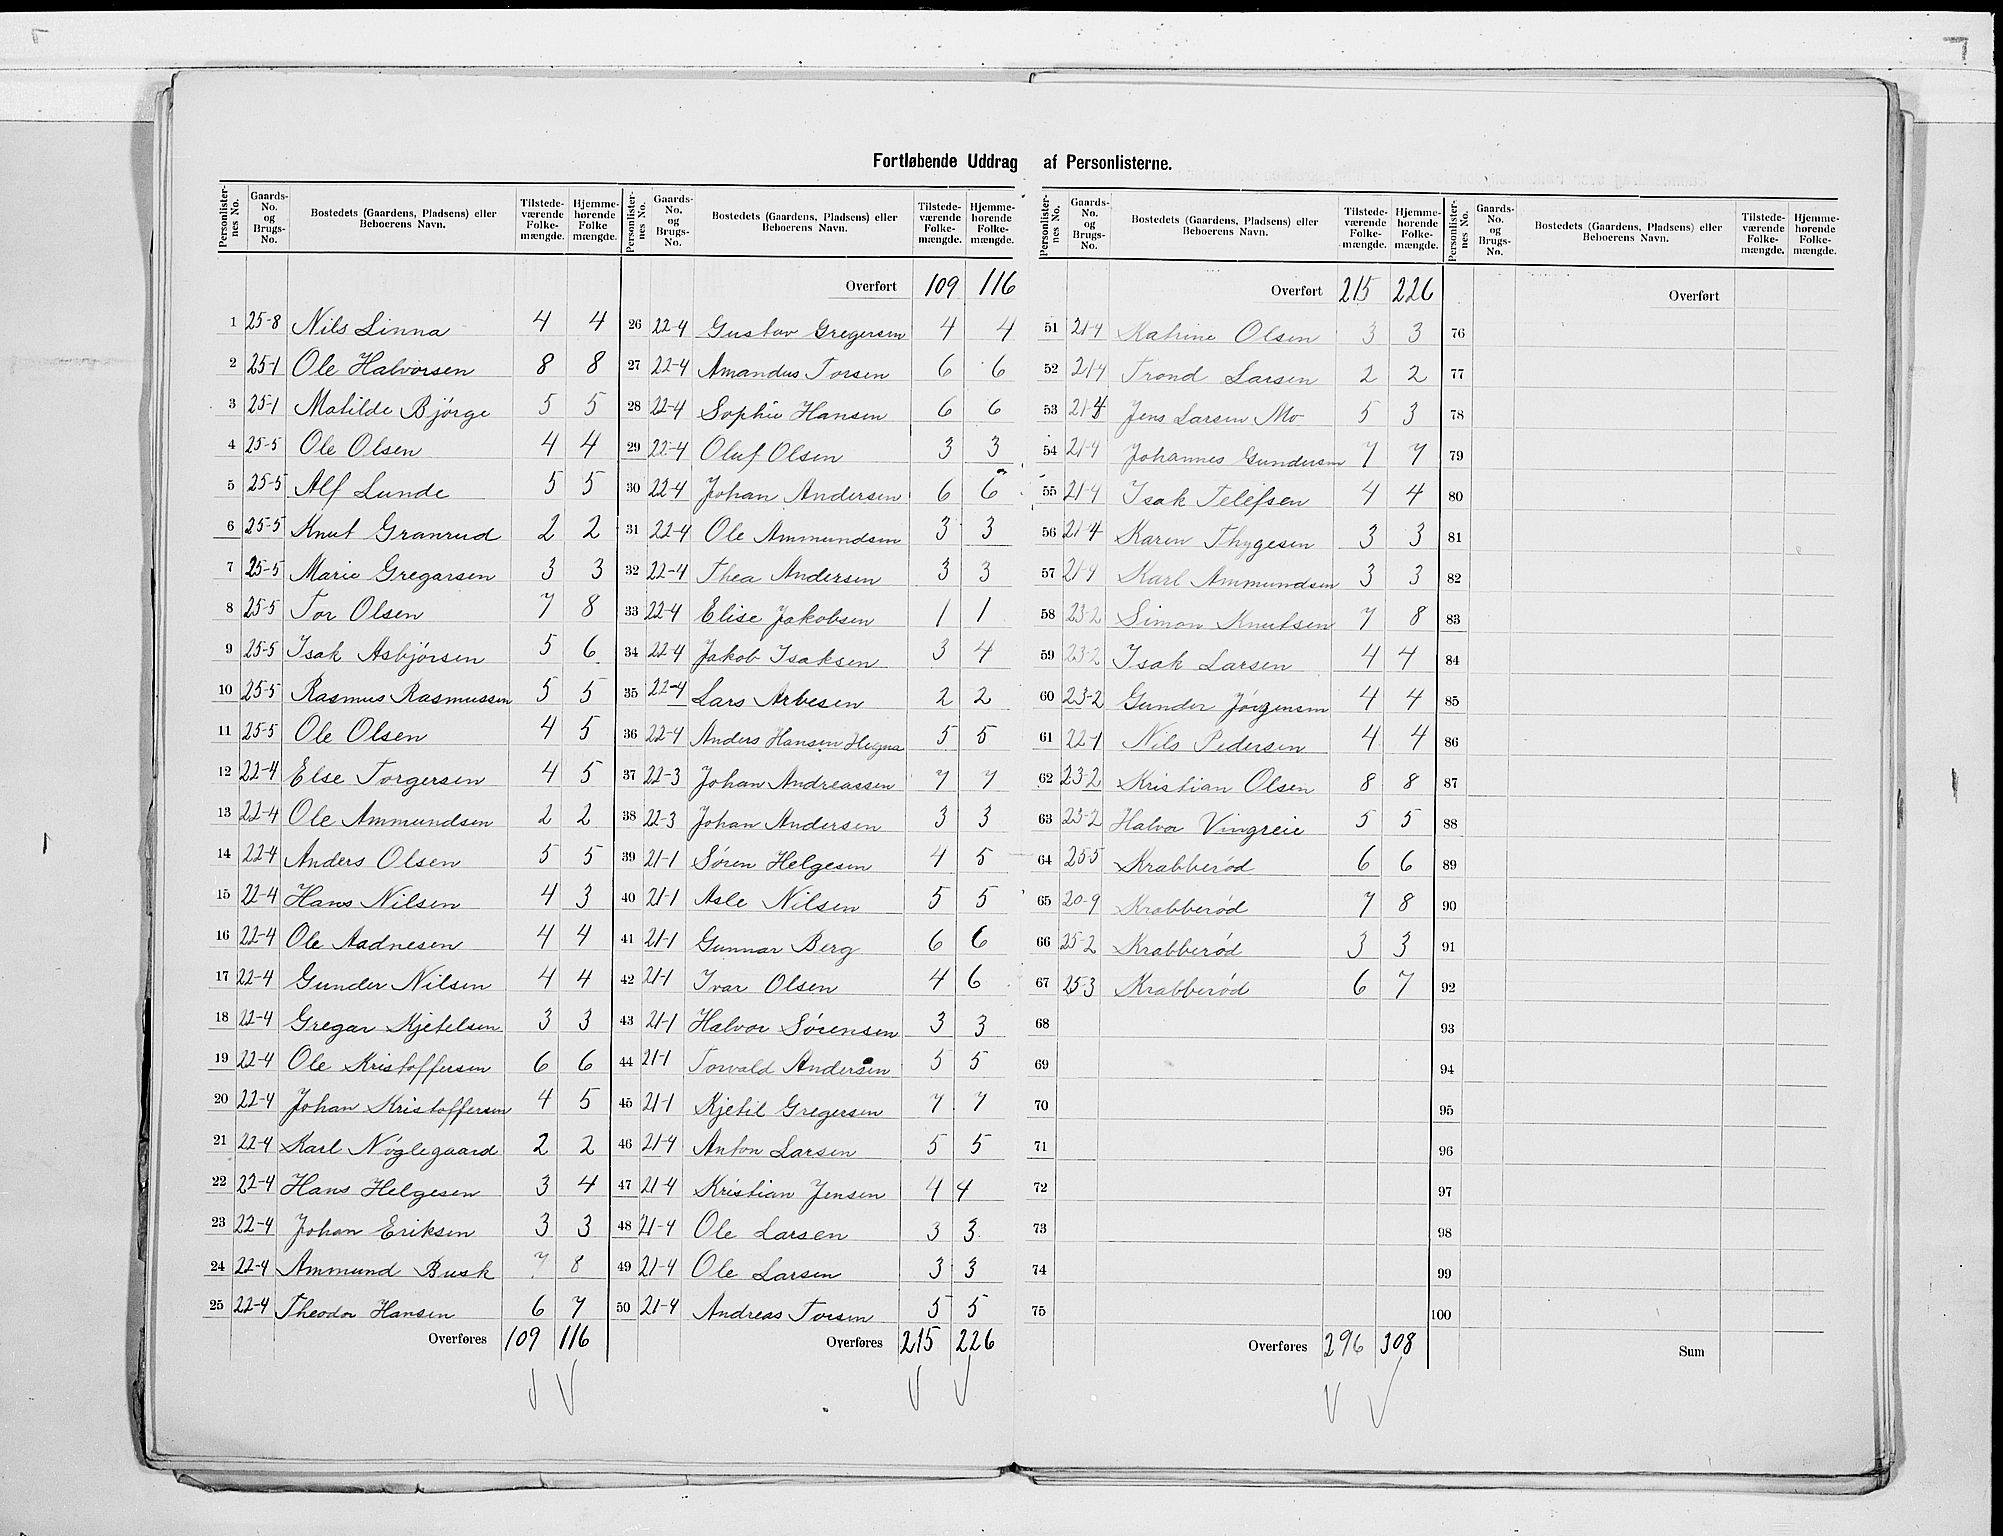 Fortløbende Uddrag af Personlisterne.
Personlister-nes No. | Gaards-No. og Brugs-No. | Bostedets (Gaardens, Pladsens) eller Beboerens Navn. | Tilstede-værende Folke-mængde. | Hjemme-hørende Folke mængde.
1 25-8 Nils Linna 4 4
2 25-1 Ole Halvorsen 8 8
3 25-1 Matilde Bjørge 5 5
4 25-5 Ole Olsen 4 4
5 25-5 Alf Lunde 5 5
6 25-5 Knut Granrud 2 2
7 25-5 Marie Gregarsen 3 3
8 25-5 Tor Olsen 7 8
9 25-5 Isak Asbjørsen 5 6
10 25-5 Rasmus Rasmussen 5 5
11 25-5 Ole Olsen 4 5
12 22-4 Else Torgersen 4 5
13 22-4 Ole Ammundsen 2 2
14 22-4 Anders Olsen 5 5
15 22-4 Hans Nilsen 4 3
16 22-4 Ole Aadnesen 4 4
17 22-4 Gunder Nilsen 4 4
18 22-4 Gregar Kjetelsen 3 3
19 22-4 Ole Kristoffersen 6 6
20 22-4 Johan Kristoffersen 4 5
21 22-4 Karl Nøglegaard 2 2
22 22-4 Hans Helgesen 3 4
23 22-4 Johan Eriksen 3 3
24 22-4 Ammund Busk 7 8
25 22-4 Theodor Hansen 6 7
Overføres 109 116
Personlister-nes No. | Gaards-No. og Brugs-No. | Bostedets (Gaardens, Pladsens) eller Beboerens Navn. | Tilstede-værende Folke-mængde. | Hjemme-hørende Folke-mængde.
Overført 109 116
26 22-4 Gustav Gregersen 4 4
27 22-4 Amandus Torsen 6 6
28 22-4 Sophie Hansen 6 6
29 22-4 Oluf Olsen 3 3
30 22-4 Johan Andersen 6 6
31 22-4 Ole Ammundsen 3 3
32 22-4 Thea Andersen 3 3
33 22-4 Elise Jakobsen 1 1
34 22-4 Jakob Isaksen 3 4
35 22-4 Lars Arvesen 2 2
36 22-4 Anders Hansen 5 5
37 22-3 Johan Andreassen 7 7
38 22-3 Johan Andersen 3 3
39 21-1 Søren Helgesen 4 5
40 21-1 Asle Nilsen 5 5
41 21-1 Gunnar Berg 6 6
42 21-1 Ivar Olsen 4 6
43 21-1 Halvor Sørensen 3 3
44 21-1 Torvald Andersen 5 5
45 21-1 Kjetil Gregersen 7 7
46 21-4 Anton Larsen 5 5
47 21-4 Kristian Jensen 4 4
48 21-4 Ole Larsen 3 3
49 21-4 Ole Larsen 3 3
50 21-4 Andreas Torsen 5 5
Overføres 215 226
Personlister-nes No. | Gaards-No. og Brugs-No. | Bostedets (Gaardens, Pladsens) eller Beboerens Navn. | Tilstede-værende Folke-mængde. | Hjemme-hørende Folke-mængde.
Overført 215 226
51 21-4 Katrine Olsen 3 3
52 21-4 Trond Larsen 2 2
53 21-4 Jens Larsen Mo 5 3
54 21-4 Johannes Gundersen 7 7
55 21-4 Isak Telefsen 4 4
56 21-4 Karen Thygesen 3 3
57 21-4 Karl Ammundsen 3 3
58 23-2 Simon Knutsen 7 8
59 23-2 Isak Larsen 4 4
60 23-2 Gunder Jørgensen 4 4
61 22-1 Nils Pedersen 4 4
62 23-2 Kristian Olsen 8 8
63 23-2 Halvor Vingreie 5 5
64 25-5 Krabberød 6 6
65 20-9 Krabberød 7 8
66 25-2 Krabberød 3 3
67 25-3 Krabberød 6 7
68
69
70
71
72
73
74
75
Overføres 296 308
Personlister-nes No. | Gaards-No. og Brugs-No. | Bostedets (Gaardens, Pladsens) eller Beboerens Navn. | Tilstede-værende Folke-mængde. | Hjemme-hørende Folke-mængde.
Overført
76
77
78
79
80
81
82
83
84
85
86
87
88
89
90
91
92
93
94
95
96
97
98
99
100
Sum